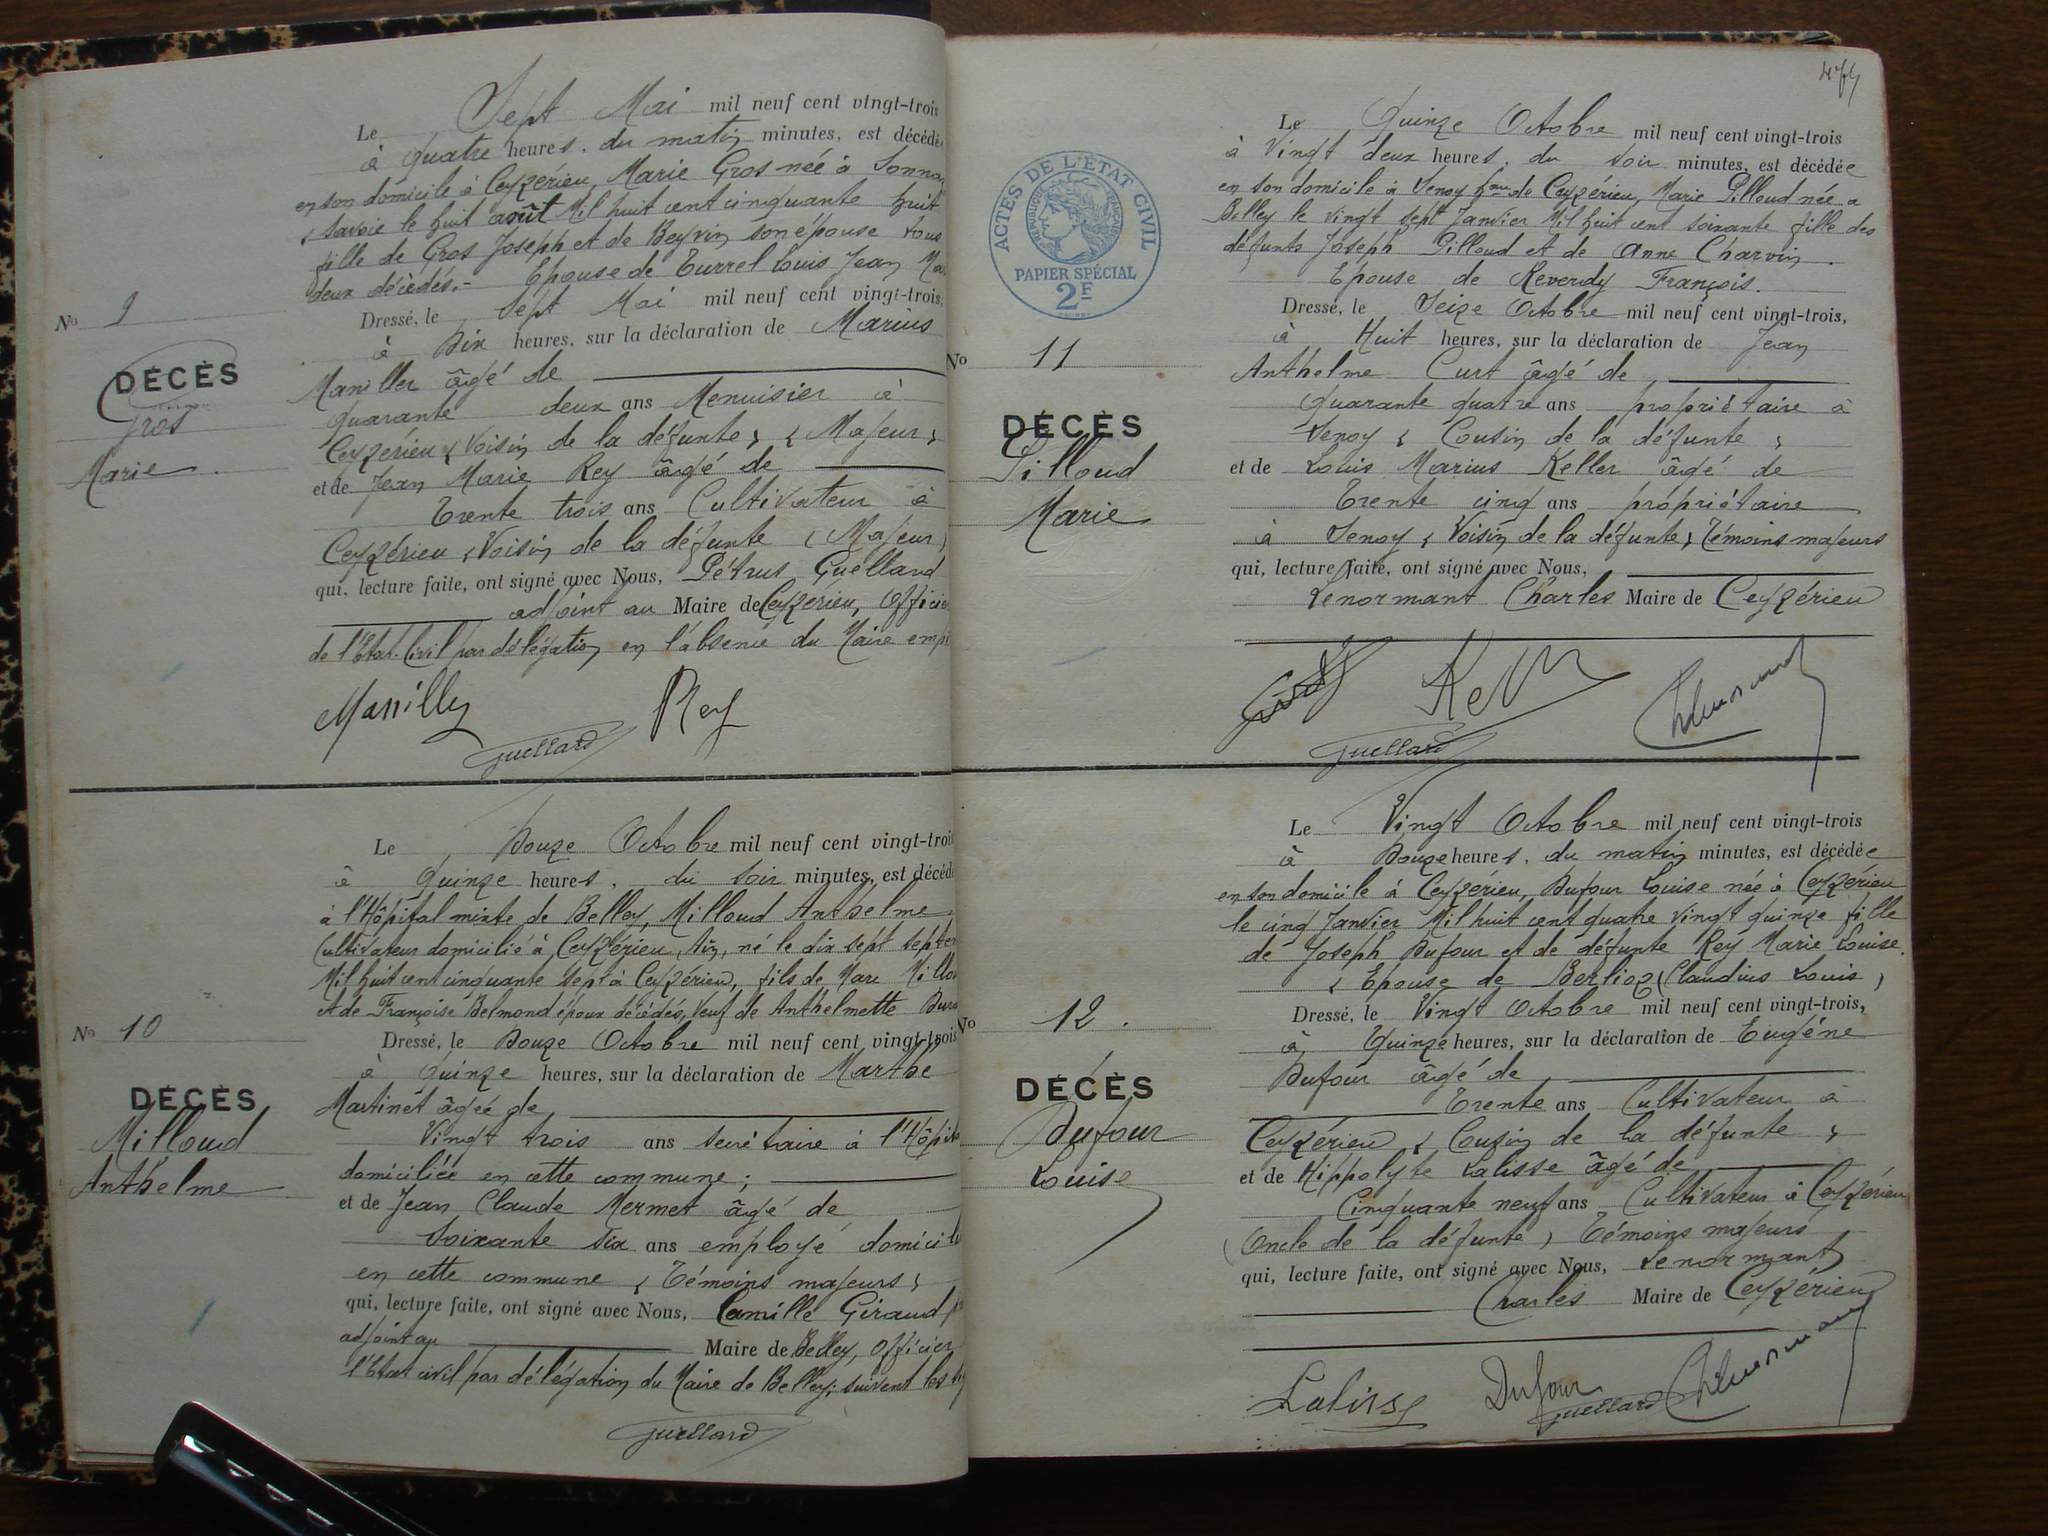 Le Sept Mai mil neuf cent vingt-trois
à quatre heures. du matin minutes, est décédée
en son domicile à Ceyzérieu, Marie Gros née à Sonna
Savoie le huit août Mil huit cent cinquante huit
fille de Gros Joseph et de Beyvin son épouse tous
deux décédés.- Epouse de Turrel Louis Jean Ma
Dressé, le Sept Mai mil neuf cent vingt-trois,
à Dix heures, sur la déclaration de Marius
No 9
DÉCÈS
Gros
Marie
Maniller âgé de
quarante deux ans Menuisier à
Ceyzerieu (Voisin de la défunte) (Majeur)
et de Jean Marie Rey âgé de
Trente trois ans Cultivateur à
Ceyzérieu (Voisin de la défunte (Majeur)
qui, lecture faite, ont signé avec Nous, Pétrus Guelland
adjoint au Maire de Ceyzerieu, Officie
de l'Etat-Civil par délégation en l'absence du Maire empê
Manilly Rey
Guelland
Le Douze Octobre mil neuf cent vingt-trois
à Quinze heures. du soir minutes, est décédé
à l'Hôpital mixte de Belley, Milloud Anthelme
Cultivateur domicilié à Ceyzérieu, Ain, né le dix sept septem
Mil huit cent cinquante sept à Ceyzérieu, fils de Marc Millou
et de Françoise Belmond époux décédés, Veuf de Anthelmette Dura
Dressé, le Douze Octobre mil neuf cent vingt-trois
à Quinze heures, sur la déclaration de Marthe
No 10
DÉCÈS
Milloud
Anthelme
Martinet âgée de
Vingt trois ans secrétaire à l'Hôpita
domiciliée en cette commune;
et de Jean Claude Mermet âgé de
Soixante six ans employé domicili
en cette commune (Témoins majeurs)
qui, lecture faite, ont signé avec Nous, Camille Giraud
adjoint au Maire de Belley, Officier
l'Etat civil par délégation du Maire de Belley; suivent les
Guelland
ACTES DE L'ÉTAT CIVIL
RÉPUBLIQUE FRANÇAISE
PAPIER SPÉCIAL
2F
Le Quinze Octobre mil neuf cent vingt-trois
à Vingt deux heures. du soir minutes, est décédée
en son domicile à Senoy hau de Ceyzérieu, Marie Pilloud née a
Belley le vingt sept Janvier Mil huit cent soixante fille des
défunts Joseph Pilloud et de Anne Charvin.
Epouse de Reverdy François.
Dressé, le Seize Octobre mil neuf cent vingt-trois,
à Huit heures, sur la déclaration de Jean
No 11
DÉCÈS
Pilloud
Marie
Anthelme Curt âgé de
Quarante quatre ans propriétaire à
Senoy (Cousin de la défunte)
et de Louis Marius Keller âgé de
Trente cinq ans propriétaire
à Senoy (Voisin de la défunte) Témoins majeurs
qui, lecture faite, ont signé avec Nous,
Lenormant Charles Maire de Ceyzérieu
Guelland
Le Vingt Octobre mil neuf cent vingt-trois
à Douze heures. du matin minutes, est décédée
en son domicile à Ceyzérieu, Dufour Louise née à Ceyzérieu
le cinq Janvier Mil huit cent quatre vingt quinze fille
de Joseph Dufour et de défunte Rey Marie Louise.
(Epouse de Berlioz (Claudius Louis)
Dressé, le Vingt Octobre mil neuf cent vingt-trois,
à Quinze heures, sur la déclaration de Eugène
No 12.
DÉCÈS
Dufour
Louise
Dufour âgé de
Trente ans Cultivateur à
Ceyzérieu (Cousin de la défunte)
et de Hippolyte Lalisse âgé de
Cinquante neuf ans Cultivateur à Ceyzérieu
(Oncle de la défunte) Témoins majeurs
qui, lecture faite, ont signé avec Nous, Lenormant
Charles Maire de Ceyzérieu
Lalisse Dufour
Guelland